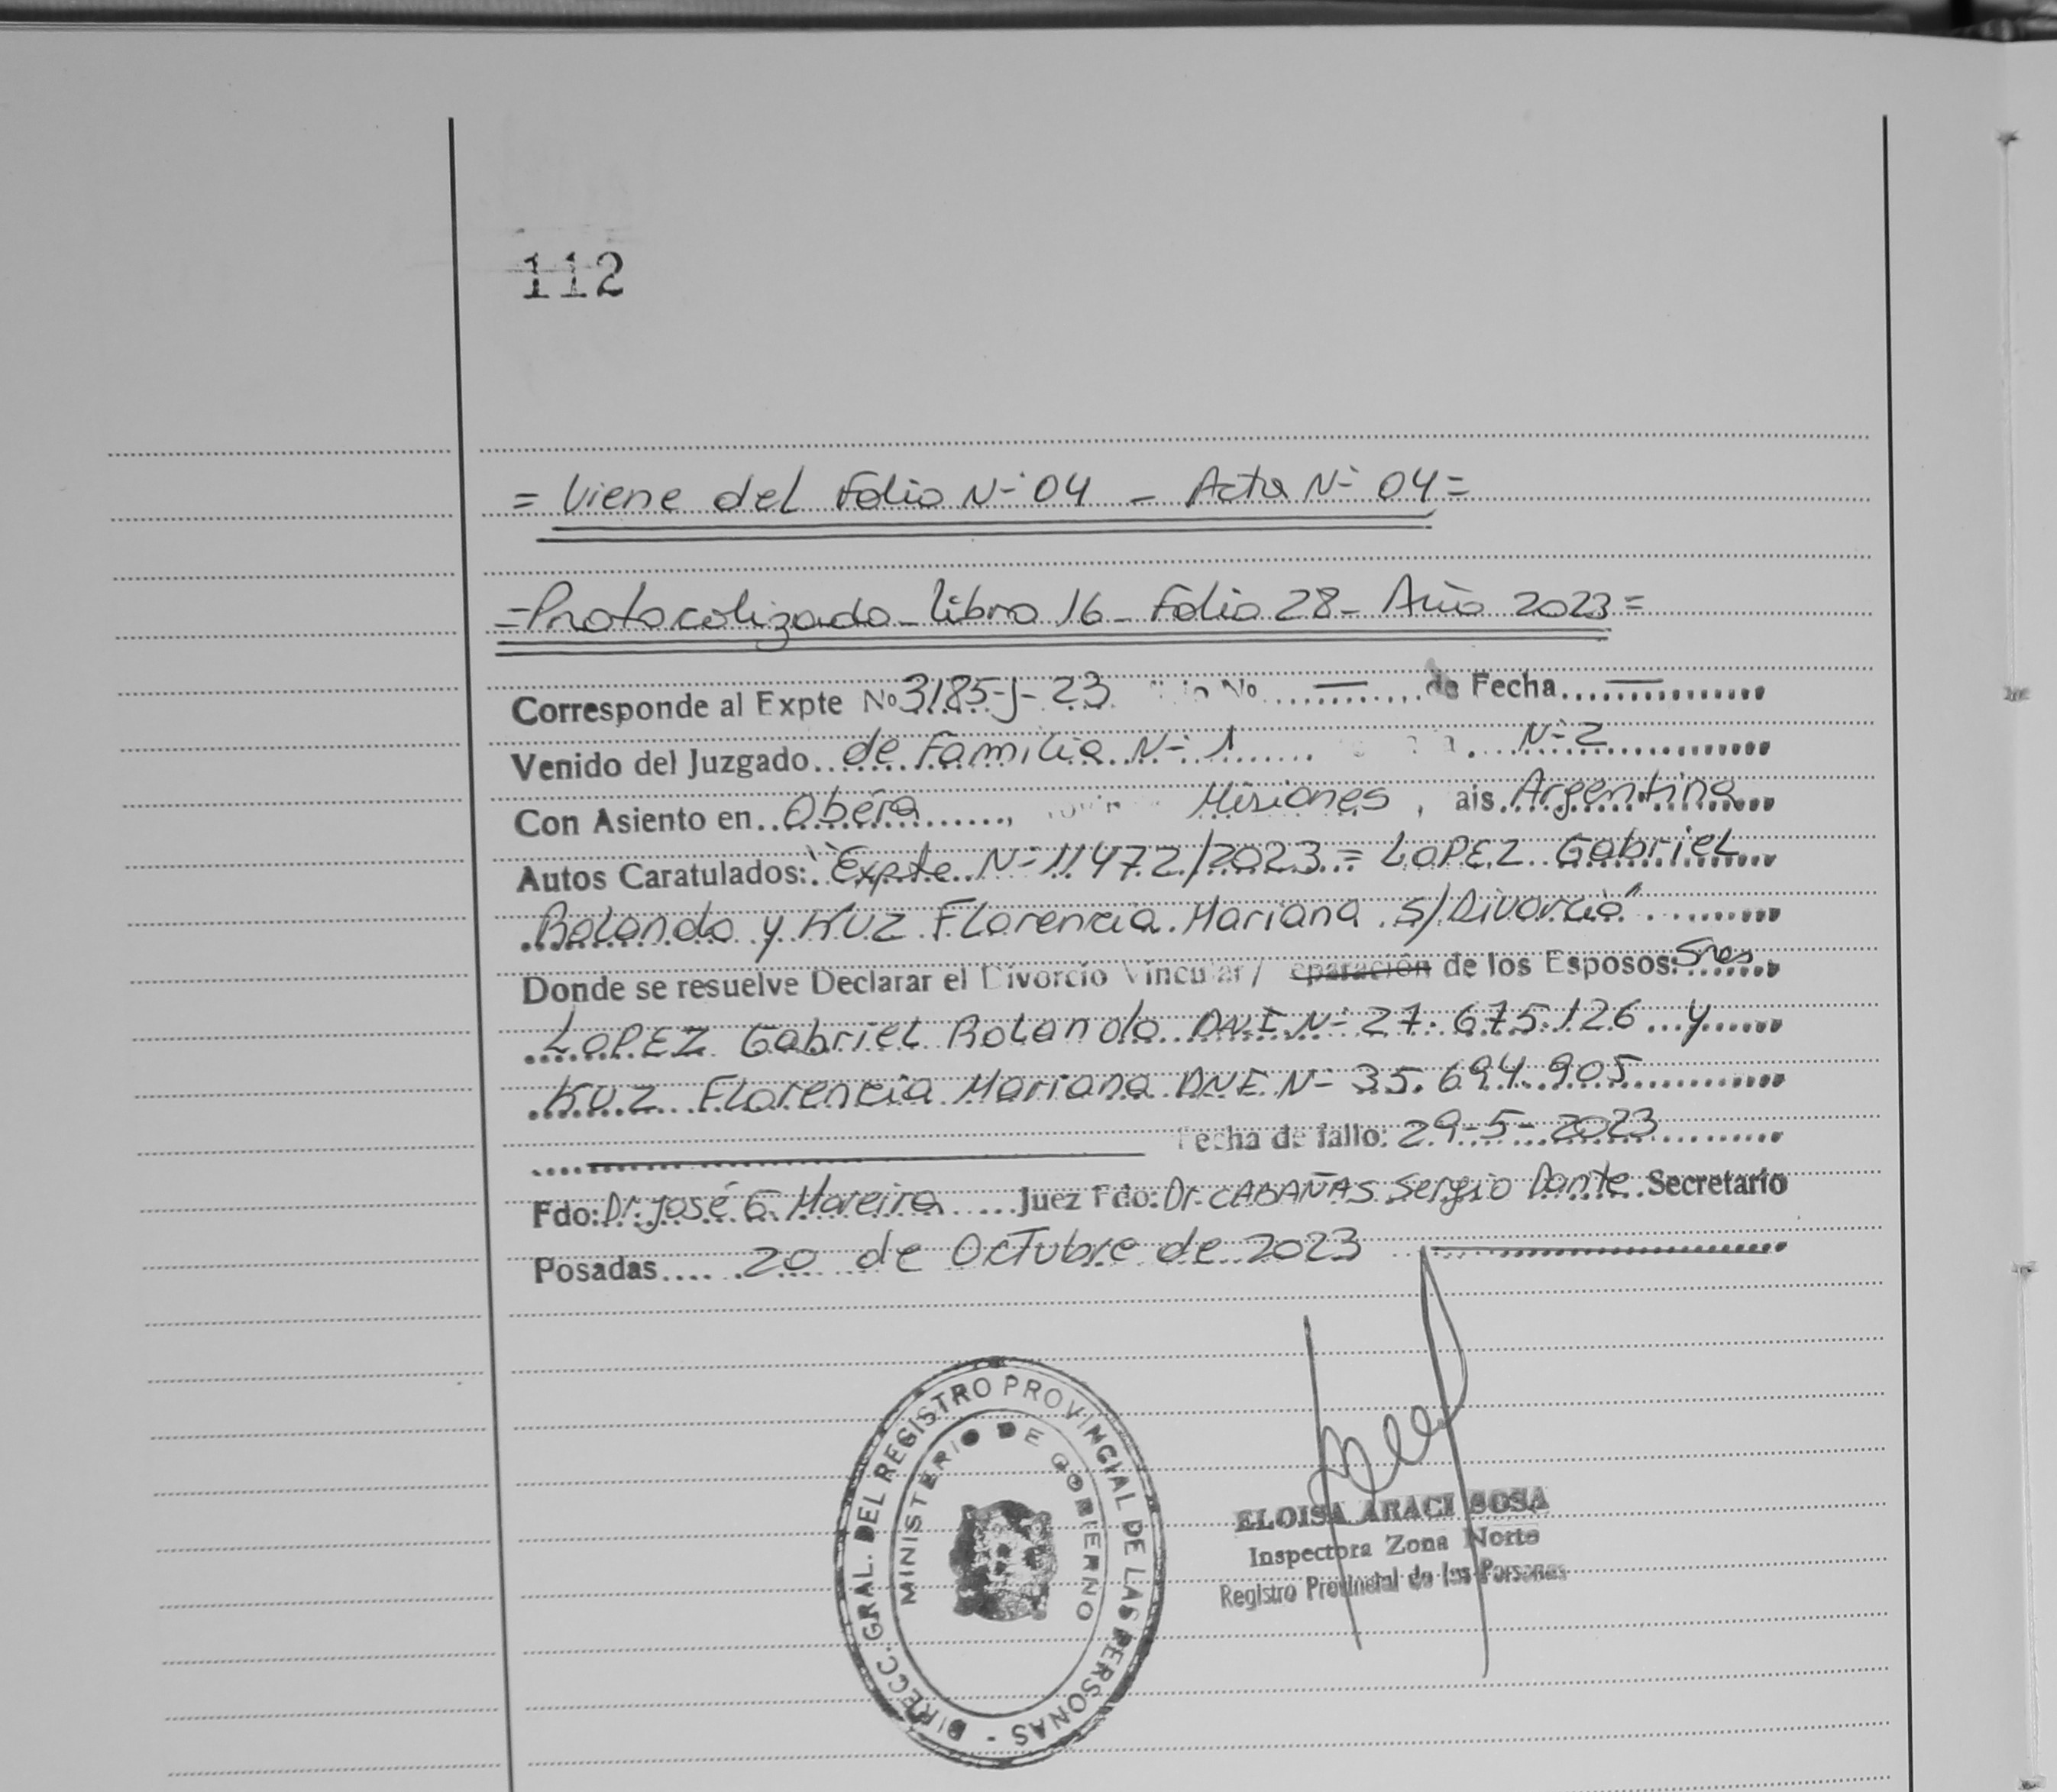 112
= Viene del Folio N° 04 - Acta N° 04 =
= Protocolizado - Libro 16 - Folio 28 - Año 2023 =
Corresponde al Expte No 3185-J-23 No. — de Fecha. —
Venido del Juzgado de Familia N° 1 N° 2
Con Asiento en Oberá, Misiones, ais Argentina
Autos Caratulados: "Expte N° 11472/2023 = LOPEZ Gabriel
Rolando y KUZ Florencia Mariana s/Divorcio"
Donde se resuelve Declarar el Divorcio Vincular/ eparación de los Esposos: Sres.
LOPEZ Gabriel Rolando DNI N° 27.675.126 y
KUZ Florencia Mariana DNI N° 35.694.905
Fecha de fallo: 29-5-2023
Fdo: Dr. José G. Moreira Juez Fdo: Dr. CABAÑAS Sergio Dante Secretario
Posadas 20 de Octubre de 2023
DIRECC. GRAL. DEL REGISTRO PROVINCIAL DE LAS PERSONAS -
MINISTERIO DE GOBIERNO
ELOISA ARACI SOSA
Inspectora Zona Norte
Registro Provincial de las Personas